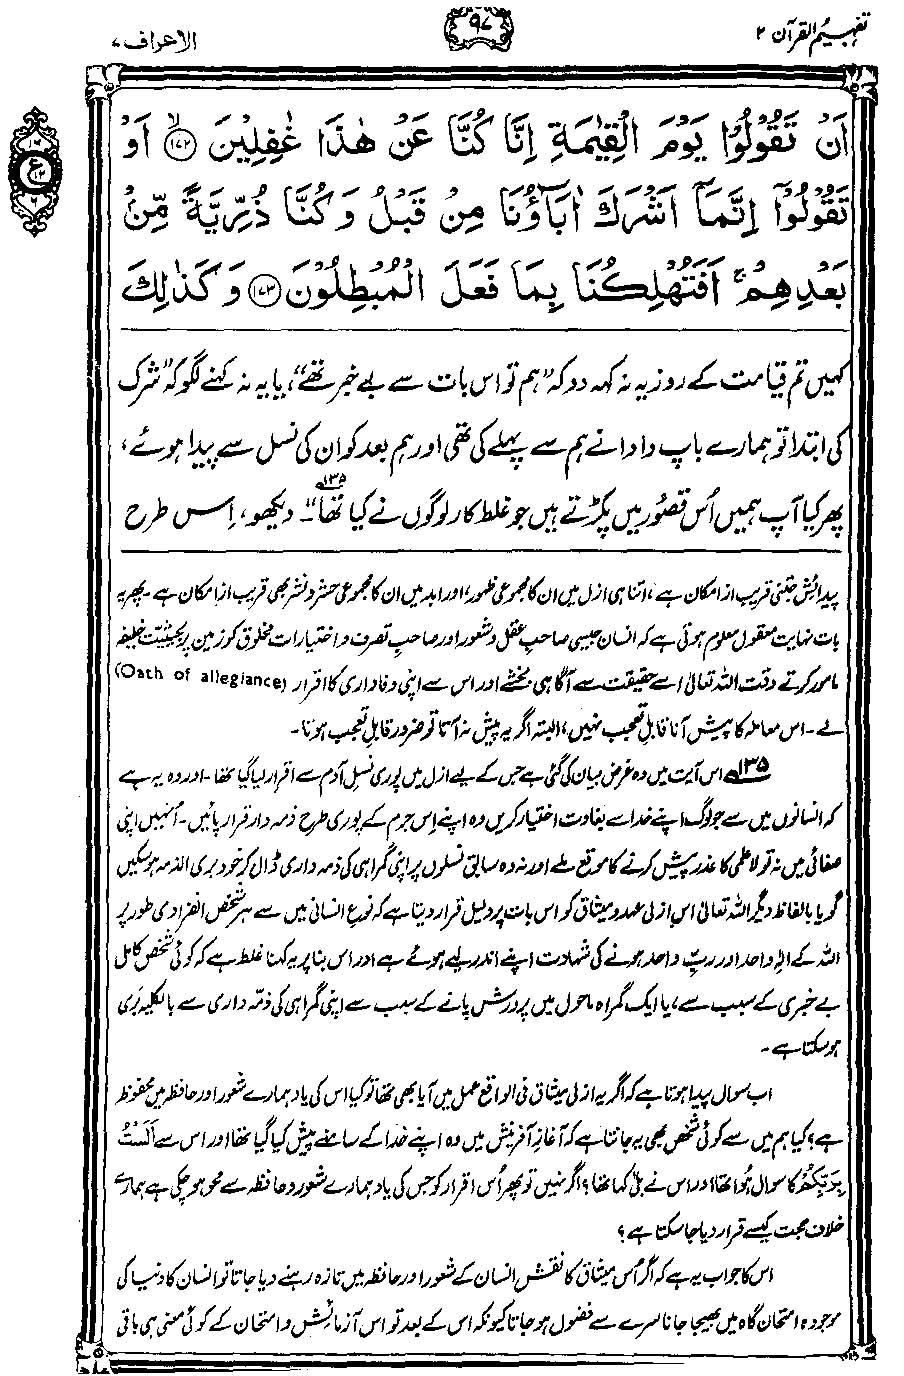 تفہیم القرآن ۲
۹۷
الاعراف ۷
اَنْ تَقُوْلُوْا يَوْمَ الْقِيٰمَةِ اِنَّا كُنَّا عَنْ هٰذَا غٰفِلِيْنَ ﴿۱۷۲﴾ اَوْ
تَقُوْلُوْٓا اِنَّمَآ اَشْرَكَ اٰبَآؤُنَا مِنْ قَبْلُ وَكُنَّا ذُرِّيَّةً مِّنْۢ
بَعْدِهِمْ ۚ اَفَتُهْلِكُنَا بِمَا فَعَلَ الْمُبْطِلُوْنَ ﴿۱۷۳﴾ وَكَذٰلِكَ
ع
کہیں تم قیامت کے روز یہ نہ کہہ دو کہ ”ہم تو اس بات سے بے خبر تھے“، یا یہ نہ کہنے لگو کہ ”شرک
کی ابتدا تو ہمارے باپ دادا نے ہم سے پہلے کی تھی اور ہم بعد کو ان کی نسل سے پیدا ہوئے،
پھر کیا آپ ہمیں اُس قصور میں پکڑتے ہیں جو غلط کار لوگوں نے کیا تھا“۔ ۱۳۵ دیکھو، اِس طرح
پیدائش جتنی قریب از امکان ہے، اتنا ہی ازل میں ان کا مجموعی ظہور، اور ابد میں ان کا مجموعی حشر و نشر بھی قریب از امکان ہے۔ پھر یہ
بات نہایت معقول معلوم ہوتی ہے کہ انسان جیسی صاحبِ عقل و شعور اور صاحبِ تصرف و اختیارات مخلوق کو زمین پر بحیثیت خلیفہ
مامور کرتے وقت اللہ تعالیٰ اسے حقیقت سے آگاہی بخشے اور اس سے اپنی وفاداری کا اقرار (Oath of allegiance)
لے۔ اس معاملہ کا پیش آنا قابلِ تعجب نہیں، البتہ اگر یہ پیش نہ آتا تو ضرور قابلِ تعجب ہوتا۔
۱۳۵ اس آیت میں وہ غرض بیان کی گئی ہے جس کے لیے ازل میں پوری نسلِ آدم سے اقرار لیا گیا تھا۔ اور وہ یہ ہے
کہ انسانوں میں سے جو لوگ اپنے خدا سے بغاوت اختیار کریں وہ اپنے اِس جرم کے پوری طرح ذمہ دار قرار پائیں۔ اُنہیں اپنی
صفائی میں نہ تو لاعلمی کا عذر پیش کرنے کا موقع ملے اور نہ وہ سابق نسلوں پر اپنی گمراہی کی ذمہ داری ڈال کر خود بری الذمہ ہو سکیں
گویا بالفاظ دیگر اللہ تعالیٰ اس ازلی عہد و میثاق کو اس بات پر دلیل قرار دیتا ہے کہ نوعِ انسانی میں سے ہر شخص انفرادی طور پر
اللہ کے الٰہِ واحد اور ربِ واحد ہونے کی شہادت اپنے اندر لیے ہوئے ہے اور اس بنا پر یہ کہنا غلط ہے کہ کوئی شخص کامل
بے خبری کے سبب سے، یا ایک گمراہ ماحول میں پرورش پانے کے سبب سے اپنی گمراہی کی ذمہ داری سے بالکلیہ بَری
ہو سکتا ہے۔
اب سوال پیدا ہوتا ہے کہ اگر یہ ازلی میثاق فی الواقع عمل میں آیا بھی تھا تو کیا اس کی یاد ہمارے شعور اور حافظہ میں محفوظ
ہے؟ کیا ہم میں سے کوئی شخص بھی یہ جانتا ہے کہ آغازِ آفرنیش میں وہ اپنے خدا کے سامنے پیش کیا گیا تھا اور اس سے اَلَسْتُ
بِرَبِّکُمْ کا سوال ہُوا تھا اور اس نے بلیٰ کہا تھا؟ اگر نہیں تو پھر اُس اقرار کو جس کی یاد ہمارے شعور و حافظہ سے محو ہو چکی ہے ہمارے
خلاف حجت کیسے قرار دیا جا سکتا ہے؟
اس کا جواب یہ ہے کہ اگر اُس میثاق کا نقش انسان کے شعور اور حافظہ میں تازہ رہنے دیا جاتا تو انسان کا دنیا کی
موجودہ امتحان گاہ میں بھیجا جانا سرے سے فضول ہو جاتا کیونکہ اس کے بعد تو اس آزمائش و امتحان کے کوئی معنی ہی باقی